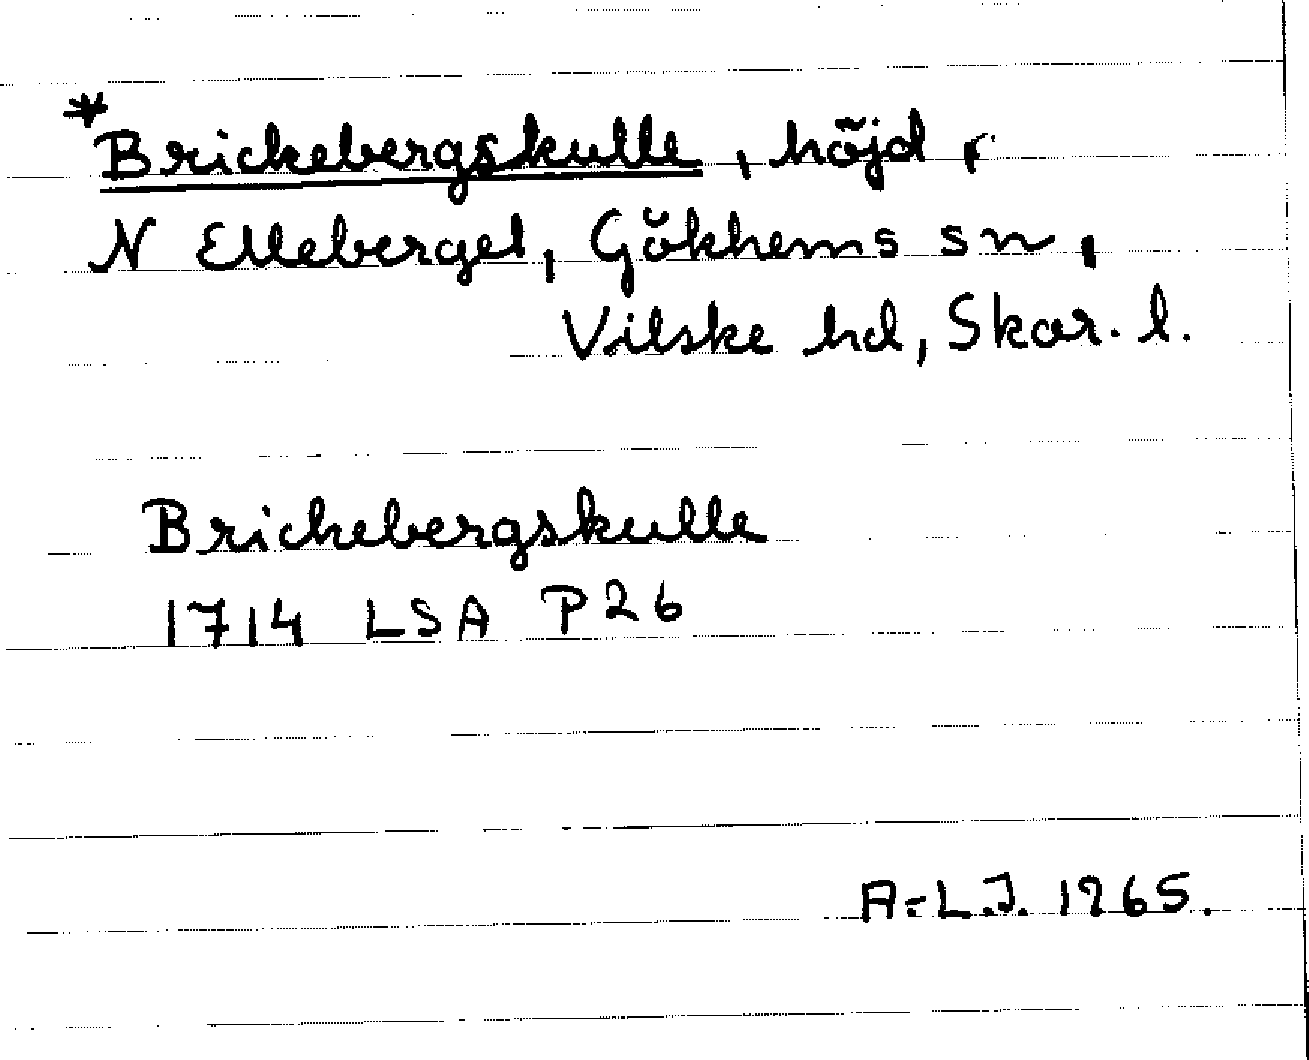 *Brickebergskulle, höjd,
N Elleberget, Gökhems sn,
Vilske hd, Skar. l.
Brickebergskulle
1714 LSA P26
A-L.J. 1965.